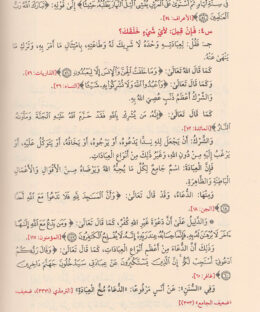 الْعَالَمِينَ﴾ [الأعراف: ٥٤].
س٤: فَإِنْ قِيلَ: لِأَيِّ شَيْءٍ خَلَقَكَ؟
جـ: فَقُلْ: لِعِبَادَتِهِ وَحْدَهُ لَا شَرِيكَ لَهُ وَطَاعَتِهِ، بِامْتِثَالِ مَا أَمَرَ بِهِ، وَتَرْكِ مَا
نَهَى عَنْهُ.
كَمَا قَالَ اللهُ تَعَالَى: ﴿وَمَا خَلَقْتُ الْجِنَّ وَالْإِنسَ إِلَّا لِيَعْبُدُونِ﴾ [الذاريات: ٥٦].
كَمَا قَالَ اللهُ تَعَالَى: ﴿وَاعْبُدُوا اللَّهَ وَلَا تُشْرِكُوا بِهِ شَيْئًا﴾ [النساء: ٣٦].
وَالشِّرْكُ أَعْظَمُ ذَنْبٍ عُصِيَ اللهُ بِهِ.
كَمَا قَالَ اللهُ تَعَالَى: ﴿إِنَّهُ مَن يُشْرِكْ بِاللَّهِ فَقَدْ حَرَّمَ اللَّهُ عَلَيْهِ الْجَنَّةَ وَمَأْوَاهُ
النَّارُ﴾ [المائدة: ٧٢].
وَالشِّرْكُ: أَنْ يَجْعَلَ لِلهِ نِدًّا يَدْعُوهُ، أَوْ يَرْجُوهُ، أَوْ يَخَافُهُ، أَوْ يَتَوَكَّلُ عَلَيْهِ، أَوْ
يَرْغَبُ إِلَيْهِ مِنْ دُونِ اللهِ، وَغَيْرُ ذَلِكَ مِنْ أَنْوَاعِ الْعِبَادَاتِ.
فَإِنَّ الْعِبَادَةَ: اسْمٌ جَامِعٌ لِكُلِّ مَا يُحِبُّهُ اللهُ وَيَرْضَاهُ مِنَ الْأَقْوَالِ وَالْأَعْمَالِ
الْبَاطِنَةِ وَالظَّاهِرَةِ.
وَمِنْهَا: الدُّعَاءُ، وَقَدْ قَالَ تَعَالَى: ﴿وَأَنَّ الْمَسَاجِدَ لِلَّهِ فَلَا تَدْعُوا مَعَ اللَّهِ أَحَدًا﴾
[الجن: ١٨].
وَالدَّلِيلُ عَلَى أَنَّ دَعْوَةَ غَيْرِ اللهِ كُفْرٌ، كَمَا قَالَ تَعَالَى: ﴿وَمَن يَدْعُ مَعَ اللَّهِ إِلَٰهًا
آخَرَ لَا بُرْهَانَ لَهُ بِهِ فَإِنَّمَا حِسَابُهُ عِندَ رَبِّهِ إِنَّهُ لَا يُفْلِحُ الْكَافِرُونَ﴾ [المؤمنون: ١١٧].
وَذَلِكَ أَنَّ الدُّعَاءَ مِنْ أَعْظَمِ أَنْوَاعِ الْعِبَادَاتِ، كَمَا قَالَ تَعَالَى: ﴿وَقَالَ رَبُّكُمُ
ادْعُونِي أَسْتَجِبْ لَكُمْ إِنَّ الَّذِينَ يَسْتَكْبِرُونَ عَنْ عِبَادَتِي سَيَدْخُلُونَ جَهَنَّمَ دَاخِرِينَ﴾
[غافر: ٦٠].
وَفِي السُّنَنِ: عَنْ أَنَسٍ مَرْفُوعًا: «الدُّعَاءُ مُخُّ الْعِبَادَةِ» [الترمذي (٣٣٧١)، ضعيف،
«ضعيف الجامع» (٣٠٠٣)]